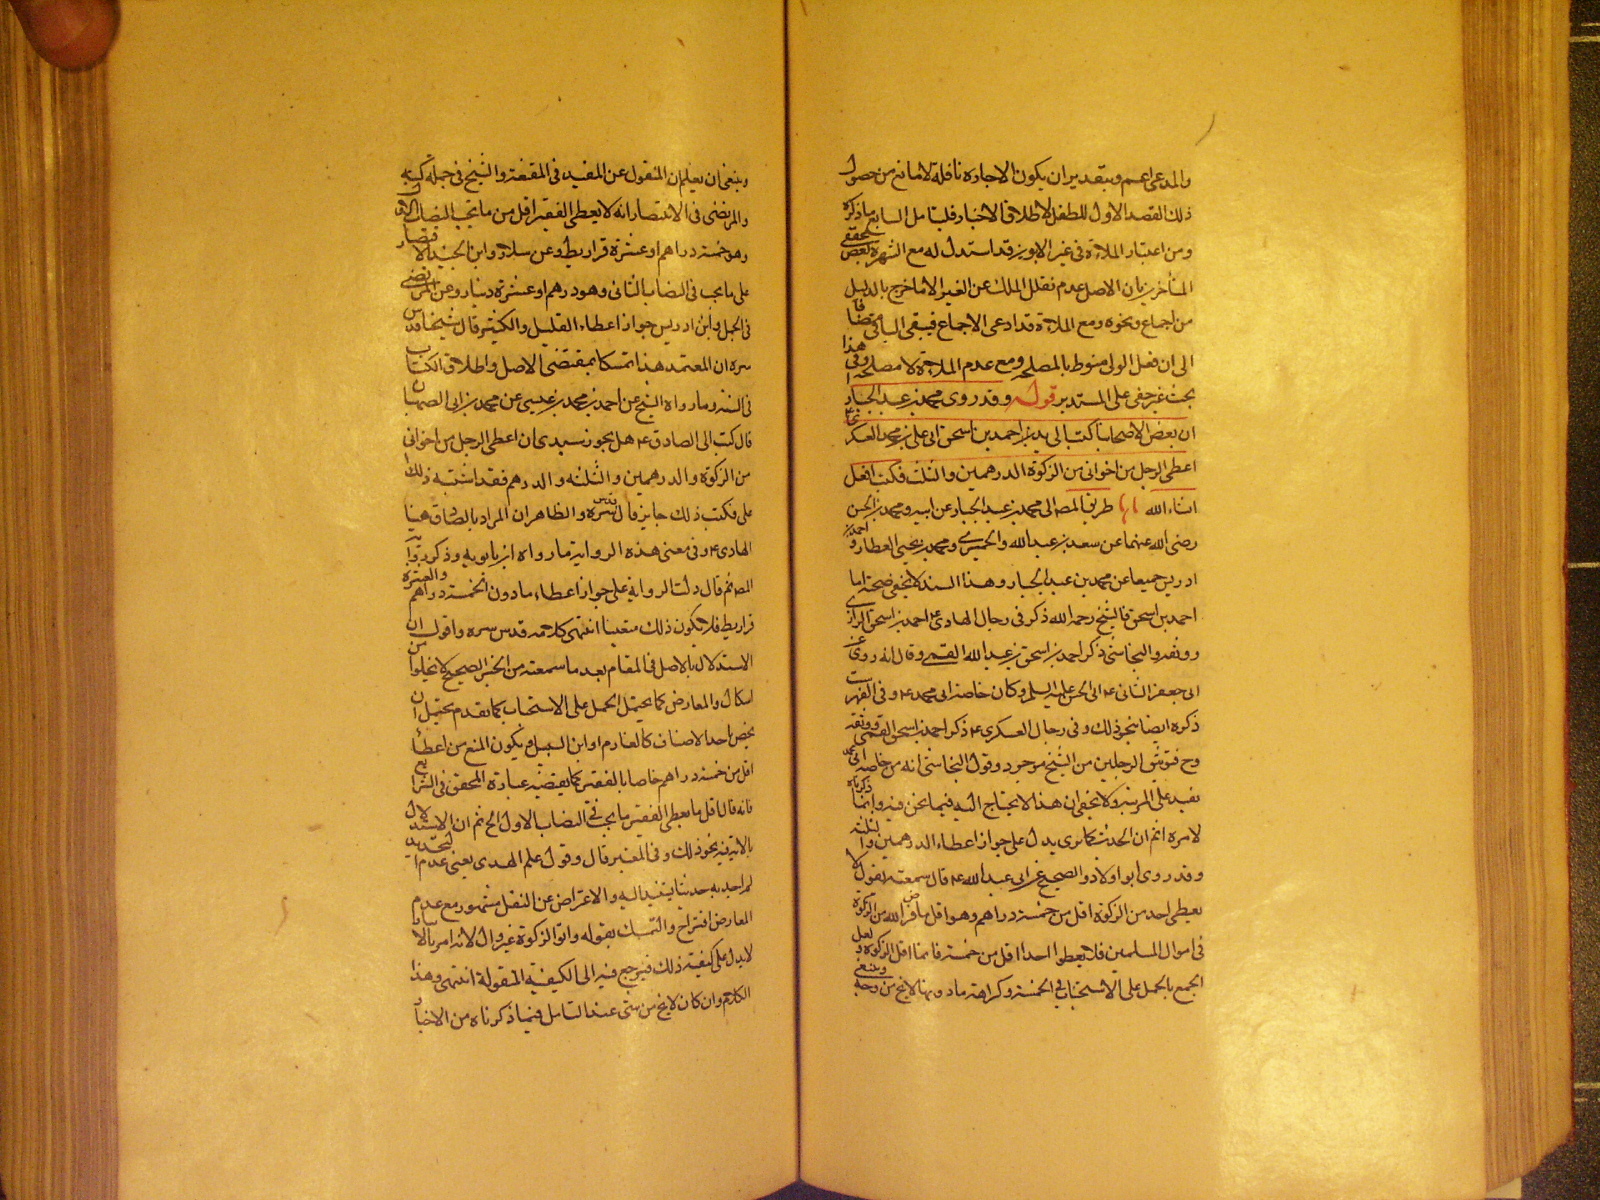 والمدعى اعم وبتقدير ان يكون الاجازه نافلة لا مانع من حصول
ذلك القصد الاول للطفل لاطلاق الاخبار فليتامل السابع ما ذكره
ومن اعتبار الملاءة فى غير الابوين قد استدل له مع الشهرة بعض محققى
المتأخرين بان الاصل عدم نقل الملك عن الغير الا ما خرج بالدليل
من اجماع ونحوه ومع الملاءة قد ادعى الاجماع فيبقى الباقى
الى ان فعل الولى منوط بالمصلحه ومع عدم الملاءة لا مصلحه وفى هذا
بحث غير خفى على المتدبر قوله وقد روى محمد بن عبد الجبار
ان بعض الاصحابنا كتب الى يد بن احمد بن اسحق الى على بن محمد العسكرى
اعطى الرجل من اخوانى من الزكوة الدرهمين والثلث فكتب افعل
انشاء الله طريق المص الى محمد بن عبد الجبار عن ابيه ومحمد بن الحسن
رضى الله عنهما عن سعد بن عبد الله والحميرى ومحمد بن يحيى العطار واحمد بن
ادريس جميعا عن محمد بن عبد الجبار وهذا السند لا يخفى صحته اما
احمد بن اسحق فالشيخ رحمه الله ذكر فى رجال الهادى ع احمد بن اسحق الرازى
وثقه والنجاشى ذكر احمد بن اسحق بن عبد الله القمى وقال انه روى عن
ابى جعفر الثانى ع ابى الحسن عليه السلم وكان خاصة ابى محمد ع وفى الفهرست
ذكره ايضا بنحو ذلك وفى رجال العسكرى ع ذكر احمد بن اسحق القمى ووثقه
وح فتوثيق الرجلين من الشيخ موجود وقول النجاشى انه من خاصه ابى محمد
يفيد على المرتبه ولا يخفى ان هذا لا يحتاج اليه فيما نحن فيه وانما ذكرناه
لامره اثم ان الحديث كما ترى يدل على جواز اعطاء الدرهمين والثلثه
وقد روى ابو اولاد والصحيح عن ابى عبد الله ع قال سمعته يقول لا
يعطى احد من الزكوة اقل من خمسة دراهم وهو اقل ما فرض الله من الزكوة
فى اموال المسلمين فلا يعطوا احدا اقل من خمسة فانما اقل الزكوة ولعل
الجمع بالحمل على الاستحباب فى الخمسة وكراهة ما دونها لا يخ من وجه وينبغى
وينبغى ان يعلم ان المنقول عن المفيد فى المقنعة والشيخ فى جملة كتبه
والمرتضى فى الانتصار انه لا يعطى الفقير اقل من ما يجب النصاب الاول
وهو خمسة دراهم او عشرة قراريط وعن سلار وابن الجنيد الاقتصار
على ما يجب فى النصاب الثانى وهو درهم او عشرة دينار وعن المرتضى
فى الجمل وابن ادريس جواز اعطاء القليل والكثير قال شيخنا قدس
سره ان المعتمد هذا تمسكا بمقتضى الاصل واطلاق الكتاب
فى السنه وما رواه الشيخ عن احمد بن محمد بن عيسى عن محمد بن ابى الصهبان
قال كتب الى الصادق ع هل يجوز سيدى ان اعطى الرجل من اخوانى
من الزكوة والدرهمين والثلثه والدرهم فقد اشتبه ذلك
على فكتب ذلك جايز قال قدس سره والظاهر ان المراد بالصادق هنا
الهادى ع وفى معنى هذه الرواية ما رواه ابن بابويه وذكر رواية
المص ثم قال دلت الرواية على جواز اعطاء ما دون الخمسة دراهم والعشرة
قراريط فلا يكون ذلك متعينا انتهى كلامه قدس سره واقول ان
الاستدلال بالاصل فى المقام بعد ما سمعته من الخبر الصحيح لا يخلوا من
اشكال والمعارض كما يحتمل الحمل على الاستحباب كما تقدم يحتمل ان
يخص احدا لاصناف كالغارم او ابن السبيل ويكون المنع من اعطاء
اقل من خمسة دراهم خاصا بالفقير كما يقتضيه عبارة المحقق فى الشرايع
فانه قال اقل ما يعطى الفقير ما يجب فى النصاب الاول الخ ثم ان الاستدلال
بالاتيه بنحو ذلك وفى المعتبر قال وقول علم الهدى يعنى عدم التحديد
لم اجد به حديثا يستند اليه والاعتراض عن النقل مشهور مع عدم
المعارض اقتراح والتمسك بقوله واتوا الزكوة غير وال لانه امر بالايتاء
لا يدل على كيفية ذلك فيرجع فيه الى الكيفية المنقولة انتهى وهذا
الكلام وان كان لا يخ من شئ عند التامل فيما ذكرناه من الاخبار